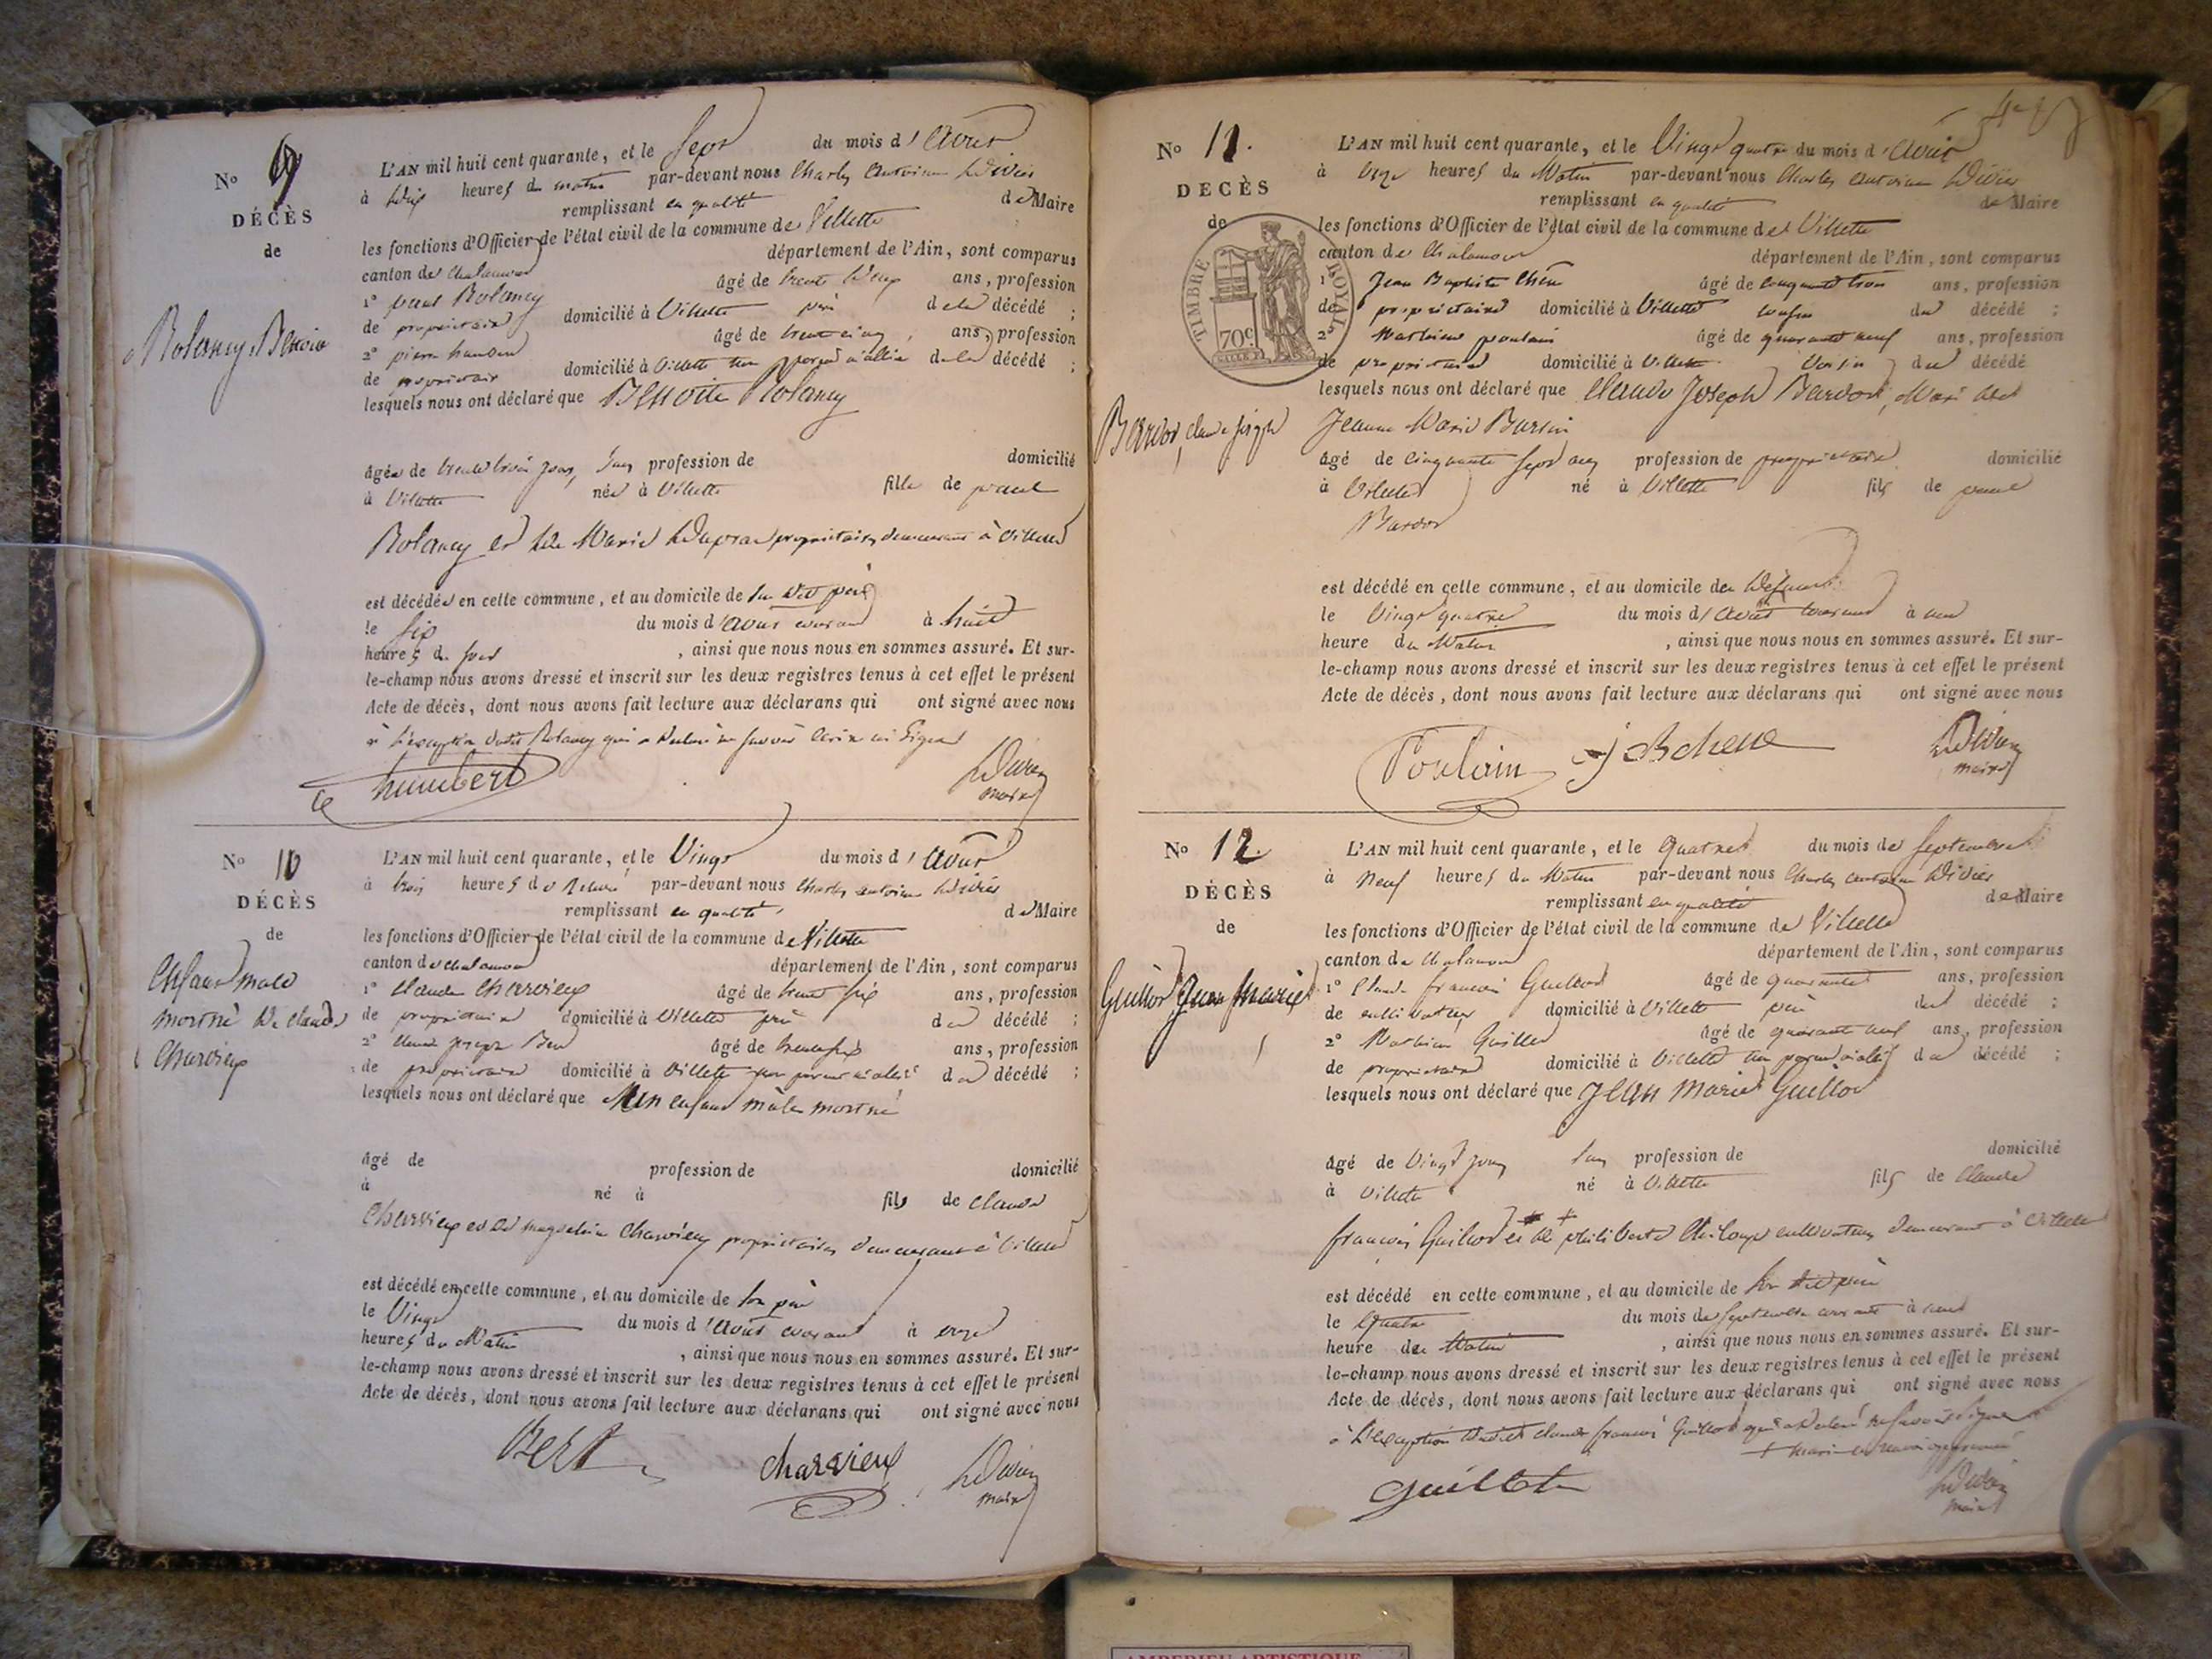 No 9
DÉCÈS
de
Rolancy, Benoite
L'AN mil huit cent quarante, et le Sept du mois d'Août
à dix heures du matin par-devant nous Charles Antoine Didier
remplissant en qualité de Maire
les fonctions d'Officier de l'état civil de la commune de Villette
canton de Chalamont département de l'Ain, sont comparus
1º paul Rolancy âgé de trente deux ans, profession
de propriétaire domicilié à Villette père de la décédé ;
2º pierre humbert âgé de trente cinq ans, profession
de propriétaire domicilié à Villette son parent de la décédé ;
lesquels nous ont déclaré que Benoite Rolancy
âgée de trente trois jours, sans profession de domicilié
à Villette née à Villette fille de paul
Rolancy et de Marie propriétaires demeurant à Villette
est décédée en cette commune, et au domicile de son dit père
le six du mois d'Août courant à huit
heures du soir , ainsi que nous nous en sommes assuré. Et sur-
le-champ nous avons dressé et inscrit sur les deux registres tenus à cet effet le présent
Acte de décès, dont nous avons fait lecture aux déclarans qui ont signé avec nous
à l'exception dudit Rolancy qui a déclaré ne savoir écrire ni signer
humbert Didier
maire
No 10
DÉCÈS
de
Enfant male
mort né de claude
Charvieux
L'AN mil huit cent quarante, et le Vingt du mois d'Août
à trois heures de relevé par-devant nous Charles antoine Didier
remplissant en qualité de Maire
les fonctions d'Officier de l'état civil de la commune de Villette
canton de chalamont département de l'Ain, sont comparus
1º claude Charvieux âgé de trente six ans, profession
de propriétaire domicilié à Villette père du décédé ;
2º claude joseph Bert âgé de trente six ans, profession
de propriétaire domicilié à Villette son parent du décédé ;
lesquels nous ont déclaré que Un enfant mâle mort né
âgé de profession de domicilié
à né à fils de claude
Charvieux et de magdelaine Charvieux propriétaires demeurant à Villette
est décédé en cette commune, et au domicile de son père
le Vingt du mois d'Août courant à onze
heures du Matin , ainsi que nous nous en sommes assuré. Et sur-
le-champ nous avons dressé et inscrit sur les deux registres tenus à cet effet le présent
Acte de décès, dont nous avons fait lecture aux déclarans qui ont signé avec nous
Bert charvieux Didier
maire
No 11.
DECÈS
de
TIMBRE ROYAL
70c
Bardot, claude joseph
L'AN mil huit cent quarante, et le Vingt quatre du mois d'Août
à onze heures du Matin par-devant nous Charles antoine Didier
remplissant en qualité de Maire
les fonctions d'Officier de l'état civil de la commune de Villette
canton de Chalamont département de l'Ain, sont comparus
1º Jean Baptiste Chêne âgé de cinquante trois ans, profession
de propriétaire domicilié à Villette cousin du décédé ;
2º Mathieu poulain âgé de quarante neuf ans, profession
de propriétaire domicilié à Villette Voisin du décédé
lesquels nous ont déclaré que Claude Joseph Bardot, Mari de
Jeanne Marie Bursin
âgé de cinquante sept ans profession de propriétaire domicilié
à Villette né à Villette fils de
Bardot
est décédé en cette commune, et au domicile du Défunt
le Vingt quatre du mois d'Août courant à une
heure du Matin , ainsi que nous nous en sommes assuré. Et sur-
le-champ nous avons dressé et inscrit sur les deux registres tenus à cet effet le présent
Acte de décès, dont nous avons fait lecture aux déclarans qui ont signé avec nous
Poulain J B chene Didier
maire
No 12.
DÉCÈS
de
Guillot, Jean Marie
L'AN mil huit cent quarante, et le quatre du mois de Septembre
à neuf heures du Matin par-devant nous Charles antoine Didier
remplissant en qualité de Maire
les fonctions d'Officier de l'état civil de la commune de Villette
canton de Chalamont département de l'Ain, sont comparus
1º Claude françois Guillot âgé de quarante ans, profession
de cultivateur domicilié à Villette père du décédé ;
2º Mathieu Guillot âgé de quarante neuf ans, profession
de propriétaire domicilié à Villette son parent du décédé ;
lesquels nous ont déclaré que Jean Marie Guillot
âgé de Vingt jours sans profession de domicilié
à Villette né à Villette fils de Claude
françois Guillot et de philiberte cultivateurs demeurant à Villette
est décédé en cette commune, et au domicile de son dit père
le quatre du mois de Septembre courant à une
heure du Matin , ainsi que nous nous en sommes assuré. Et sur-
le-champ nous avons dressé et inscrit sur les deux registres tenus à cet effet le présent
Acte de décès, dont nous avons fait lecture aux déclarans qui ont signé avec nous
à l'exception dudit claude françois Guillot qui a déclaré ne savoir signer
guillot Didier
maire
AMBERIEU ARTISTIQUE